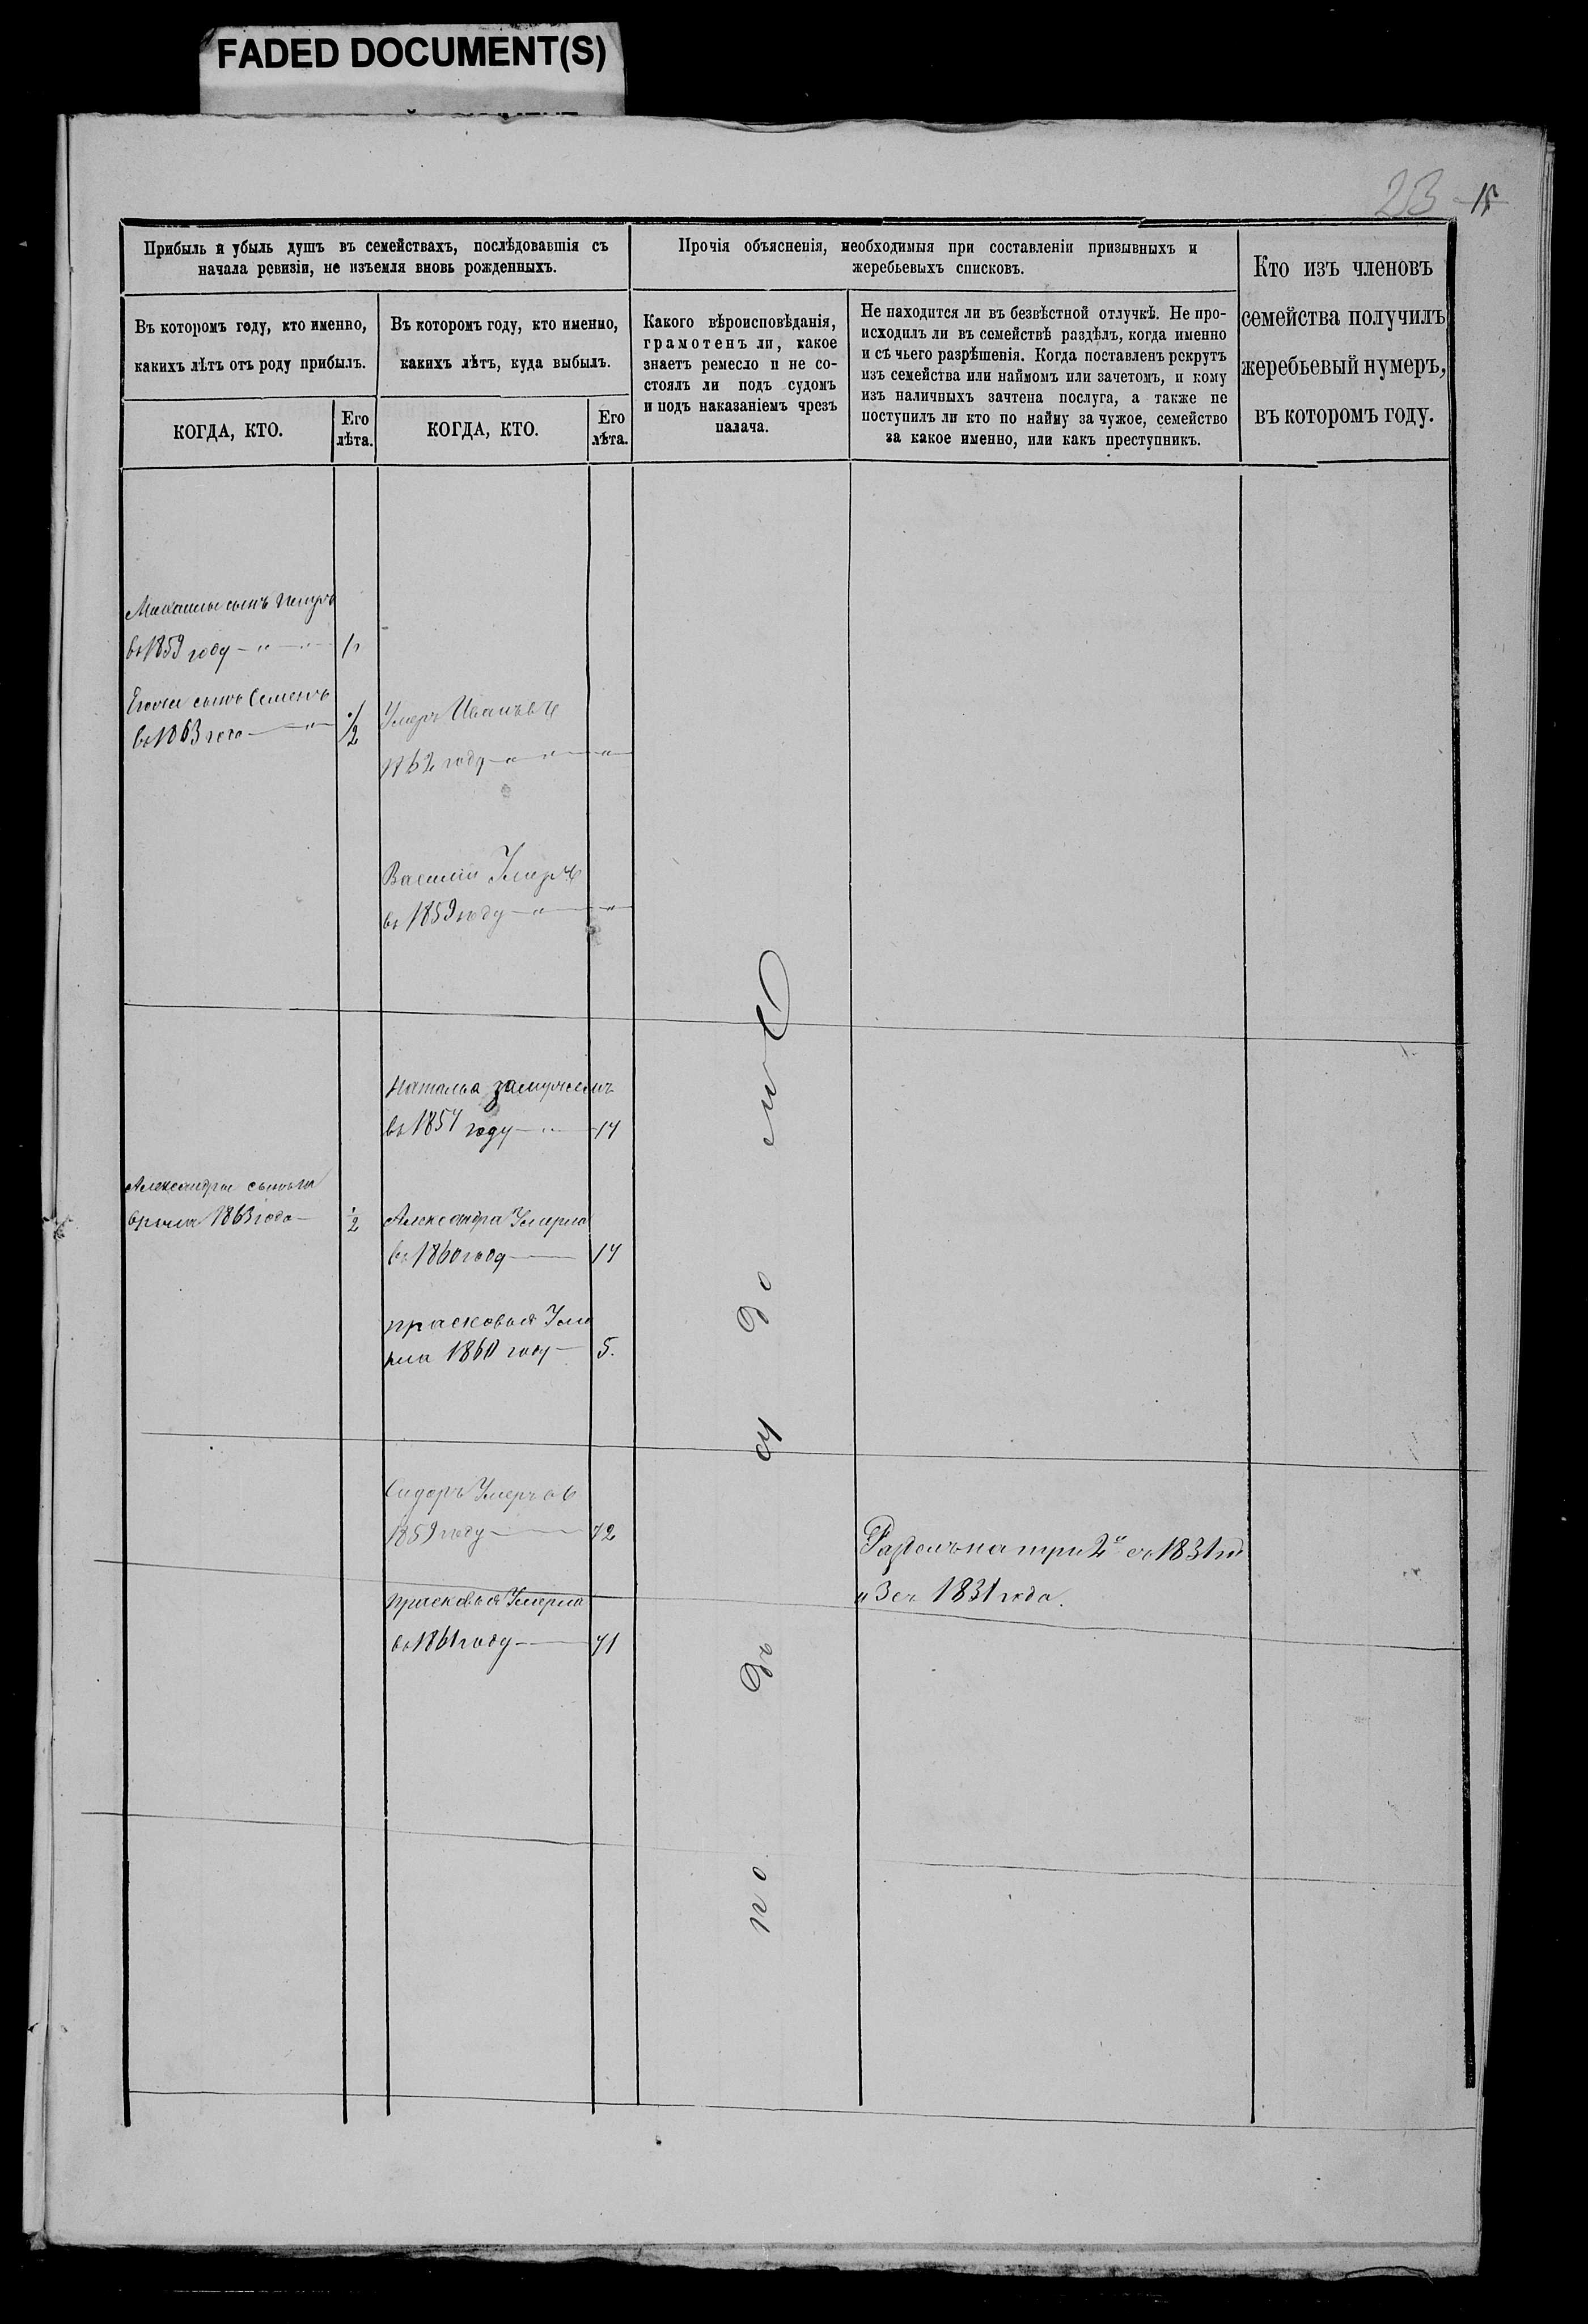 FADED DOCUMENT(S)
23 15
Прибыль и убыль душъ въ семействахъ, послѣдовавшія съ
начала ревизіи, не изъемля вновь рожденныхъ.
Въ которомъ году, кто именно,
какихъ лѣтъ отъ роду прибылъ.
КОГДА, КТО.
Его
лѣта.
Въ которомъ году, кто именно,
какихъ лѣтъ, куда выбылъ.
КОГДА, КТО.
Его
лѣта.
Прочія объясненія, необходимыя при составленіи призывныхъ и
жеребьевыхъ списковъ.
Какого вѣроисповѣданія,
грамотенъ ли, какое
знаетъ ремесло и не со-
стоялъ ли подъ судомъ
и подъ наказаніемъ чрезъ
палача.
Не находится ли въ безвѣстной отлучкѣ. Не про-
исходилъ ли въ семействѣ раздѣлъ, когда именно
и съ чьего разрѣшенія. Когда поставленъ рекрутъ
изъ семейства или наймомъ или зачетомъ, и кому
изъ наличныхъ зачтена послуга, а также не
поступилъ ли кто по найму за чужое, семейство
за какое именно, или какъ преступникъ.
Кто изъ членовъ
семейства получилъ
жеребьевый нумеръ,
въ которомъ году.
сынъ Петръ
въ 1859 году
сынъ Семенъ
въ 1863 года 1/2
Умеръ Иванъ въ
1862 году
Василій Умеръ
въ 1859 году
Наталья замужемъ
въ 1857 году 17
Александра сынъ
1863 года 1/2
Александра Умерла
въ 1860 году 17
прасковья Уме
рла 1860 году 5.
Сидоръ Умеръ въ
1859 году 72
прасковья Умерла
въ 1861 году 71
на три 2й съ 1831
и 3 съ 1831 года.